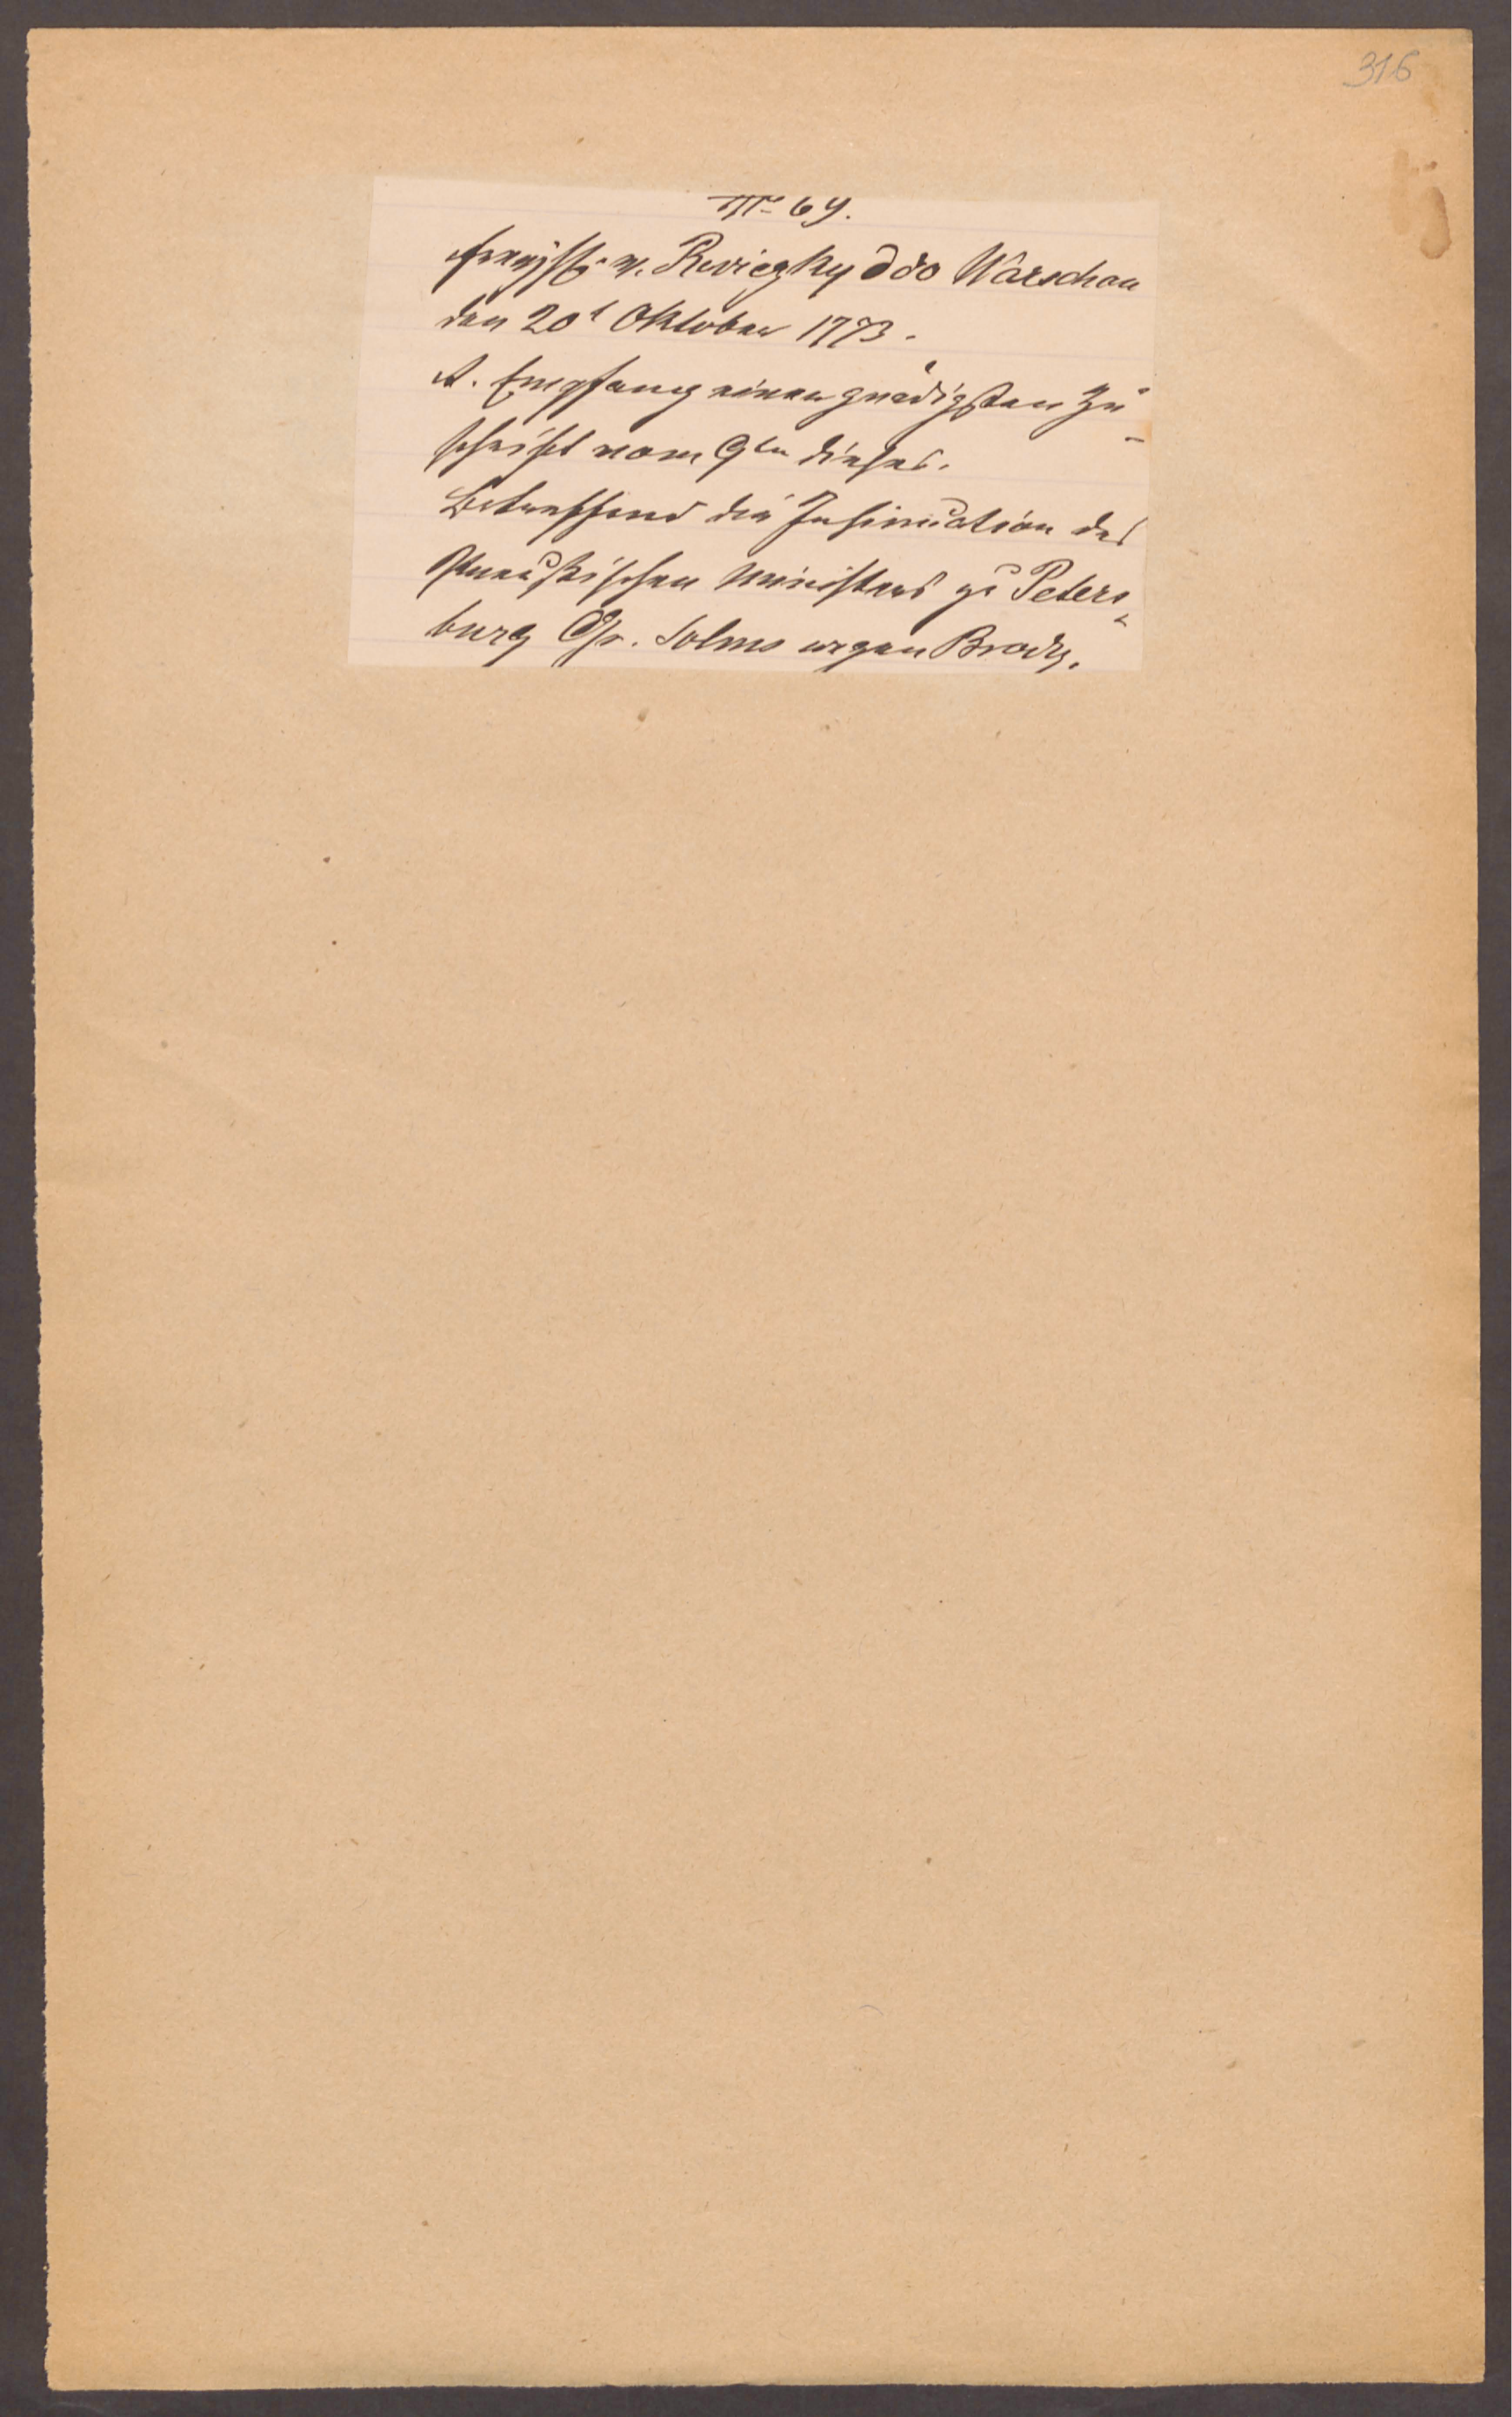 316
No 69.
Freyh. v. Reviczky ddo Warschau
den 20t Oktober 1773.
A. Empfang einer gnädigsten Zu-
schrift vom 9ten dieses.
Betreffend die Insinuation des
Preußischen Ministers zu Peters-
burg Gr. Solms wegen Brody.